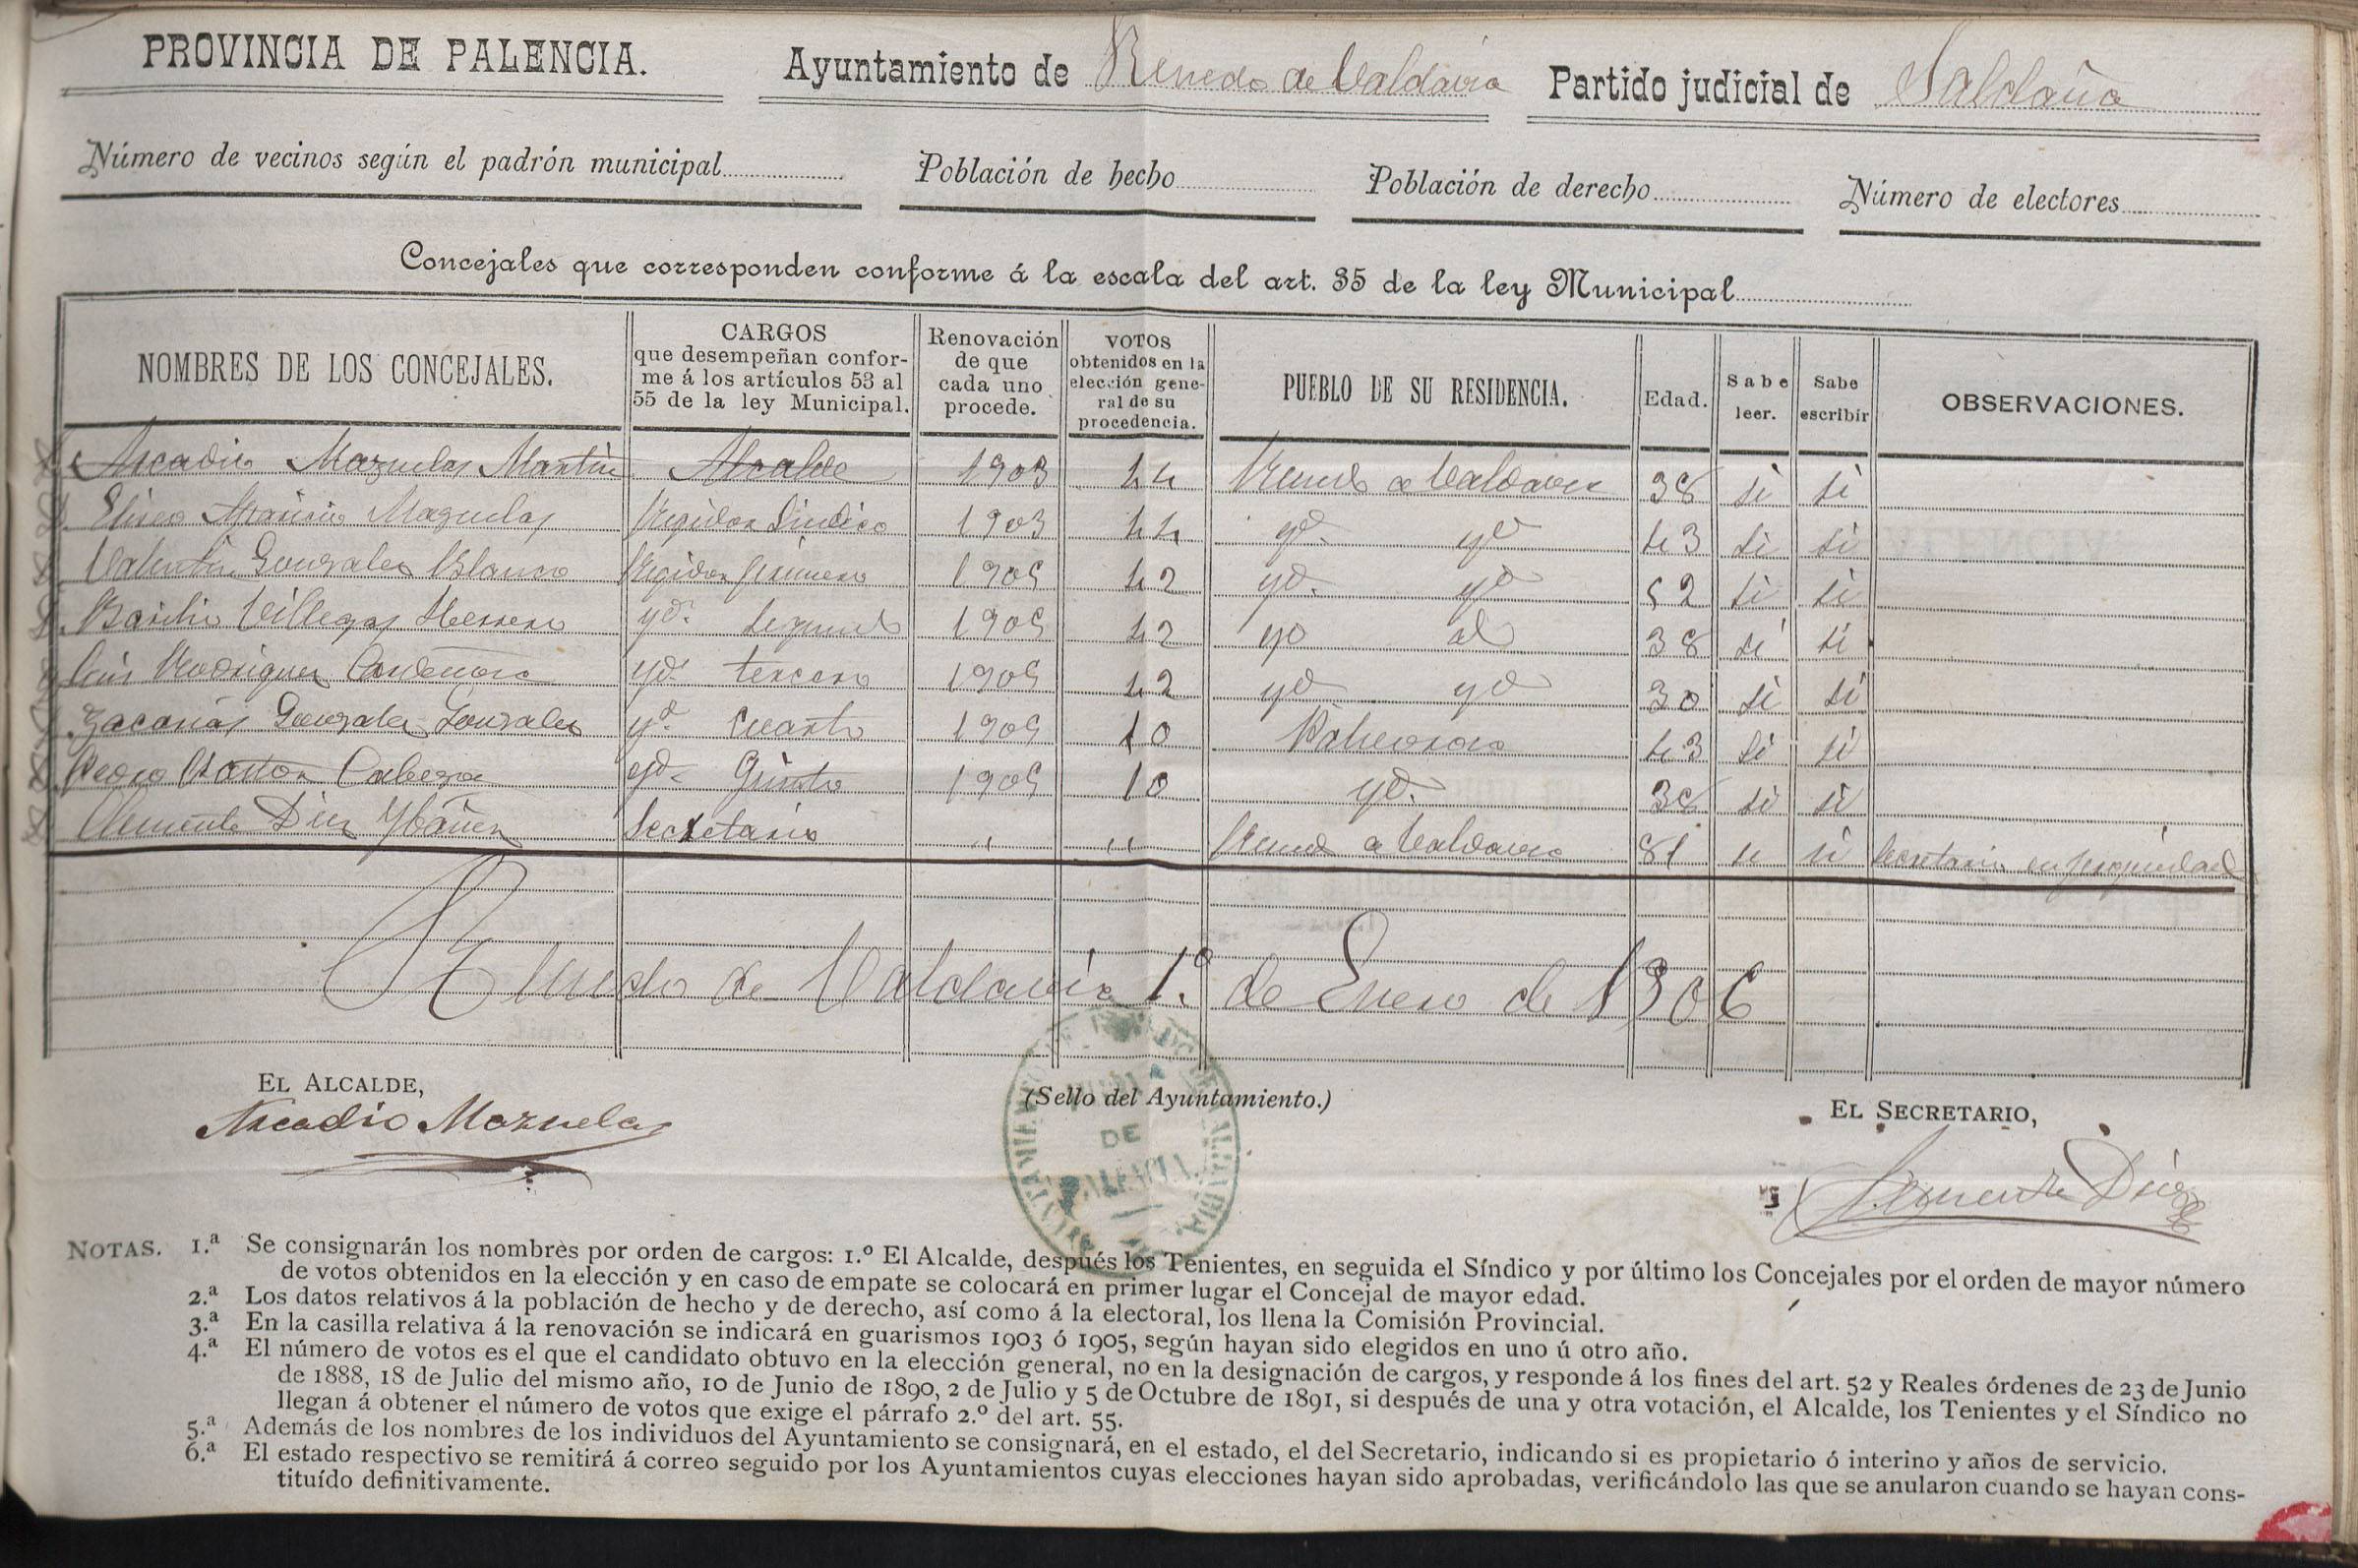 PROVINCIA DE PALENCIA. Ayuntamiento de Renedo de Valdavia Partido judicial de Saldaña
Número de vecinos según el padrón municipal Población de hecho Población de derecho Número de electores
Concejales que corresponden conforme á la escala del art. 35 de la ley Municipal
NOMBRES DE LOS CONCEJALES.
CARGOS
que desempeñan confor-
me á los artículos 53 al
55 de la ley Municipal.
Renovación
de que
cada uno
procede.
VOTOS
obtenidos en la
elección gene-
ral de su
procedencia.
PUEBLO DE SU RESIDENCIA.
Edad.
Sabe
leer.
Sabe
escribir
OBSERVACIONES.
Arcadio Mazuelas Martin Alcalde 1903 44 Renedo de Valdavia 38 si si
Eliseo Aparicio Mazuelas Regidor Sindico 1903 44 yd. yd 43 si si
Valentin Gonzalez Blanco Regidor primero 1905 42 yd. yd 52 si si
Basilio Villegas Herrero yd. segundo 1905 42 yd 38 si si
Luis Rodriguez yd. tercero 1905 42 yd yd 30 si si
Zacarias Gonzalez Gonzalez yd. cuarto 1905 10 43 si si
Pedro Cabeza yd. Quinto 1905 10 yd. si si
Clemente Diez Ybañez Secretario " " Renedo de Valdavia si si Secretario en propiedad
Renedo de Valdavia 1.º de Enero de 1906
EL ALCALDE,
Arcadio Mazuelas
(Sello del Ayuntamiento.)
DE
PALENCIA
EL SECRETARIO,
Clemente Diez
NOTAS. 1.ª Se consignarán los nombres por orden de cargos: 1.º El Alcalde, después los Tenientes, en seguida el Síndico y por último los Concejales por el orden de mayor número
de votos obtenidos en la elección y en caso de empate se colocará en primer lugar el Concejal de mayor edad.
2.ª Los datos relativos á la población de hecho y de derecho, así como á la electoral, los llena la Comisión Provincial.
3.ª En la casilla relativa á la renovación se indicará en guarismos 1903 ó 1905, según hayan sido elegidos en uno ú otro año.
4.ª El número de votos es el que el candidato obtuvo en la elección general, no en la designación de cargos, y responde á los fines del art. 52 y Reales órdenes de 23 de Junio
de 1888, 18 de Julio del mismo año, 10 de Junio de 1890, 2 de Julio y 5 de Octubre de 1891, si después de una y otra votación, el Alcalde, los Tenientes y el Síndico no
llegan á obtener el número de votos que exige el párrafo 2.º del art. 55.
5.ª Además de los nombres de los individuos del Ayuntamiento se consignará, en el estado, el del Secretario, indicando si es propietario ó interino y años de servicio.
6.ª El estado respectivo se remitirá á correo seguido por los Ayuntamientos cuyas elecciones hayan sido aprobadas, verificándolo las que se anularon cuando se hayan cons-
tituído definitivamente.